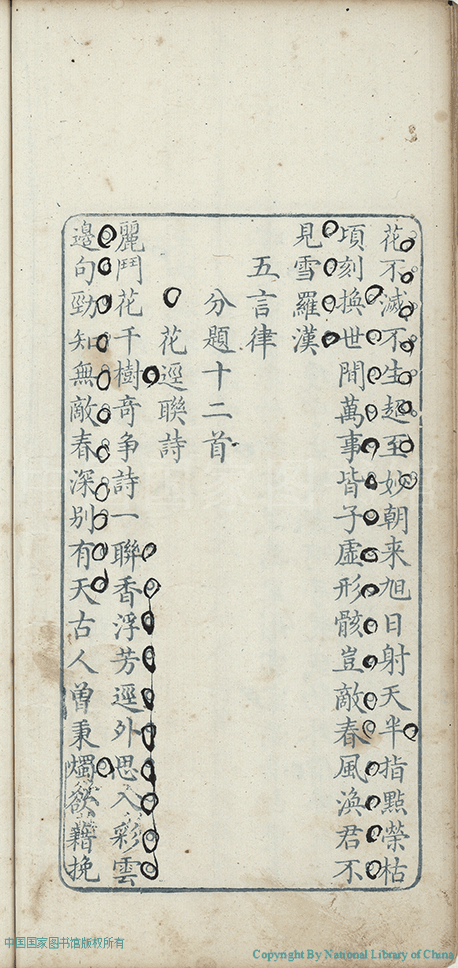 花不滅不生超至妙朝来旭日射天半指點榮枯
頃刻換世間萬事皆子虛形骸豈敵春風渙君不
見雪羅漢
五言律
分題十二首
花逕聯詩
麗鬥花千樹竒争詩一聯香浮芳逕外思入彩雲
邊句勁知無敵春深别有天古人曾秉燭欲藉挽
中国国家图书馆版权所有
Copyright By National Library of China